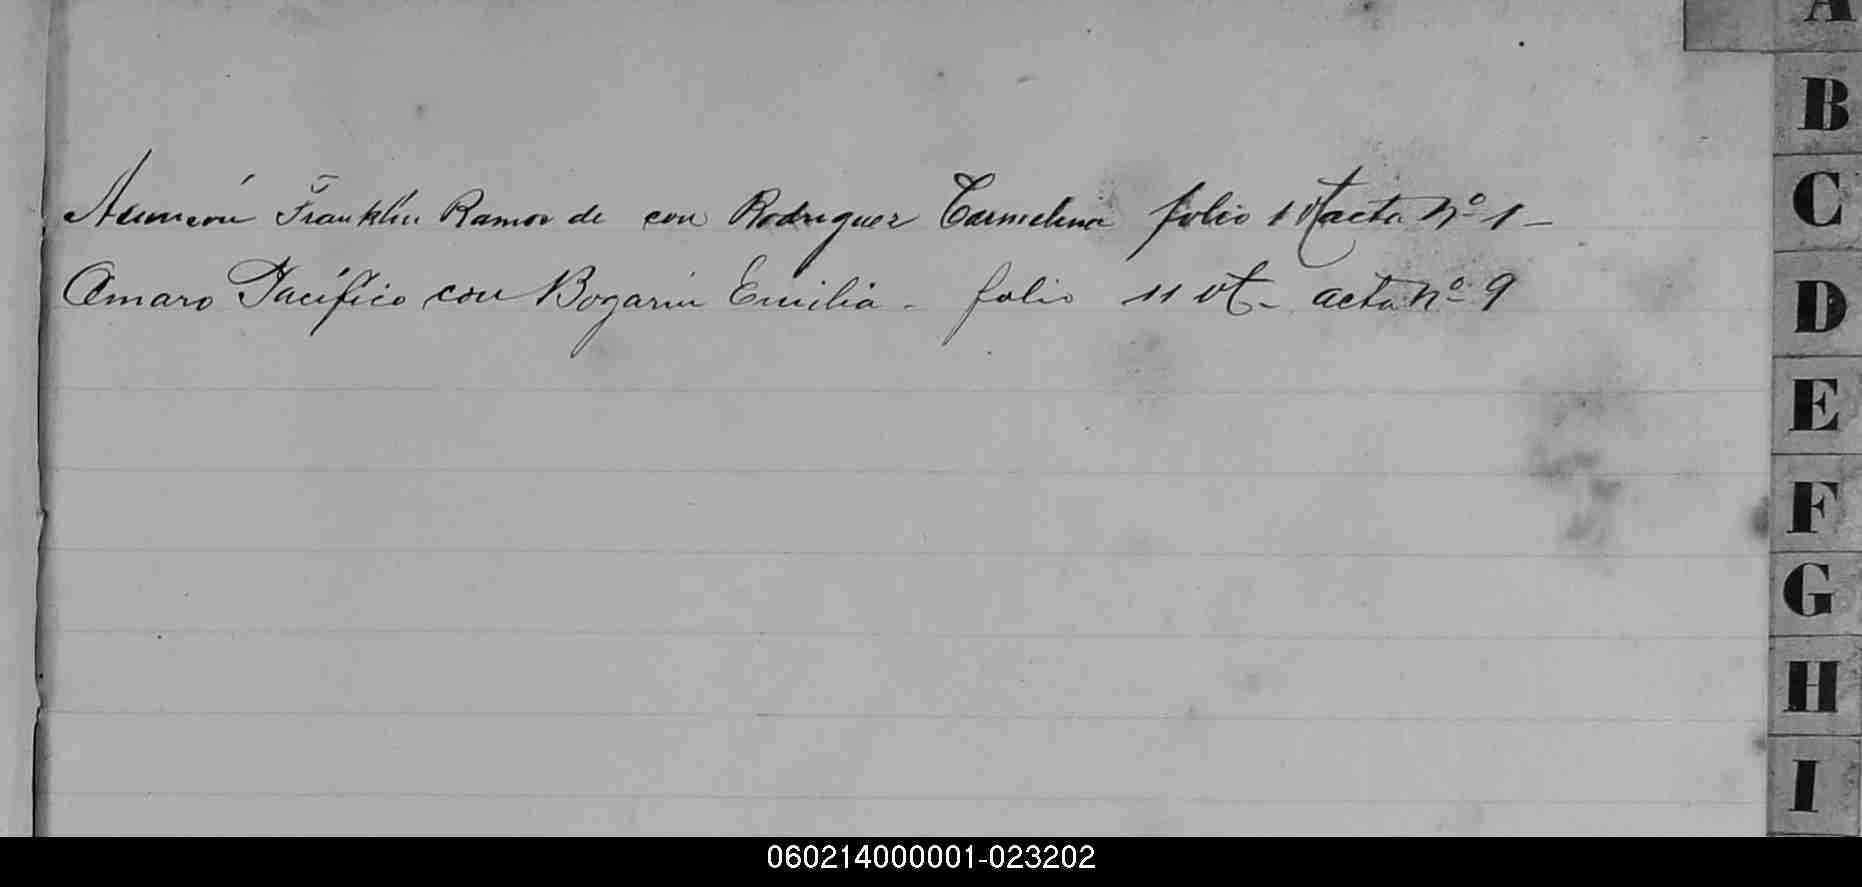 Asunción Franklin Ramos de con Rodriguez Carmelina folio 1 vt acta Nº 1 –
Amaro Pacífico con Bogarin Emilia – folio 11 vt – acta Nº 9
A
B
C
D
E
F
G
H
I
060214000001-023202